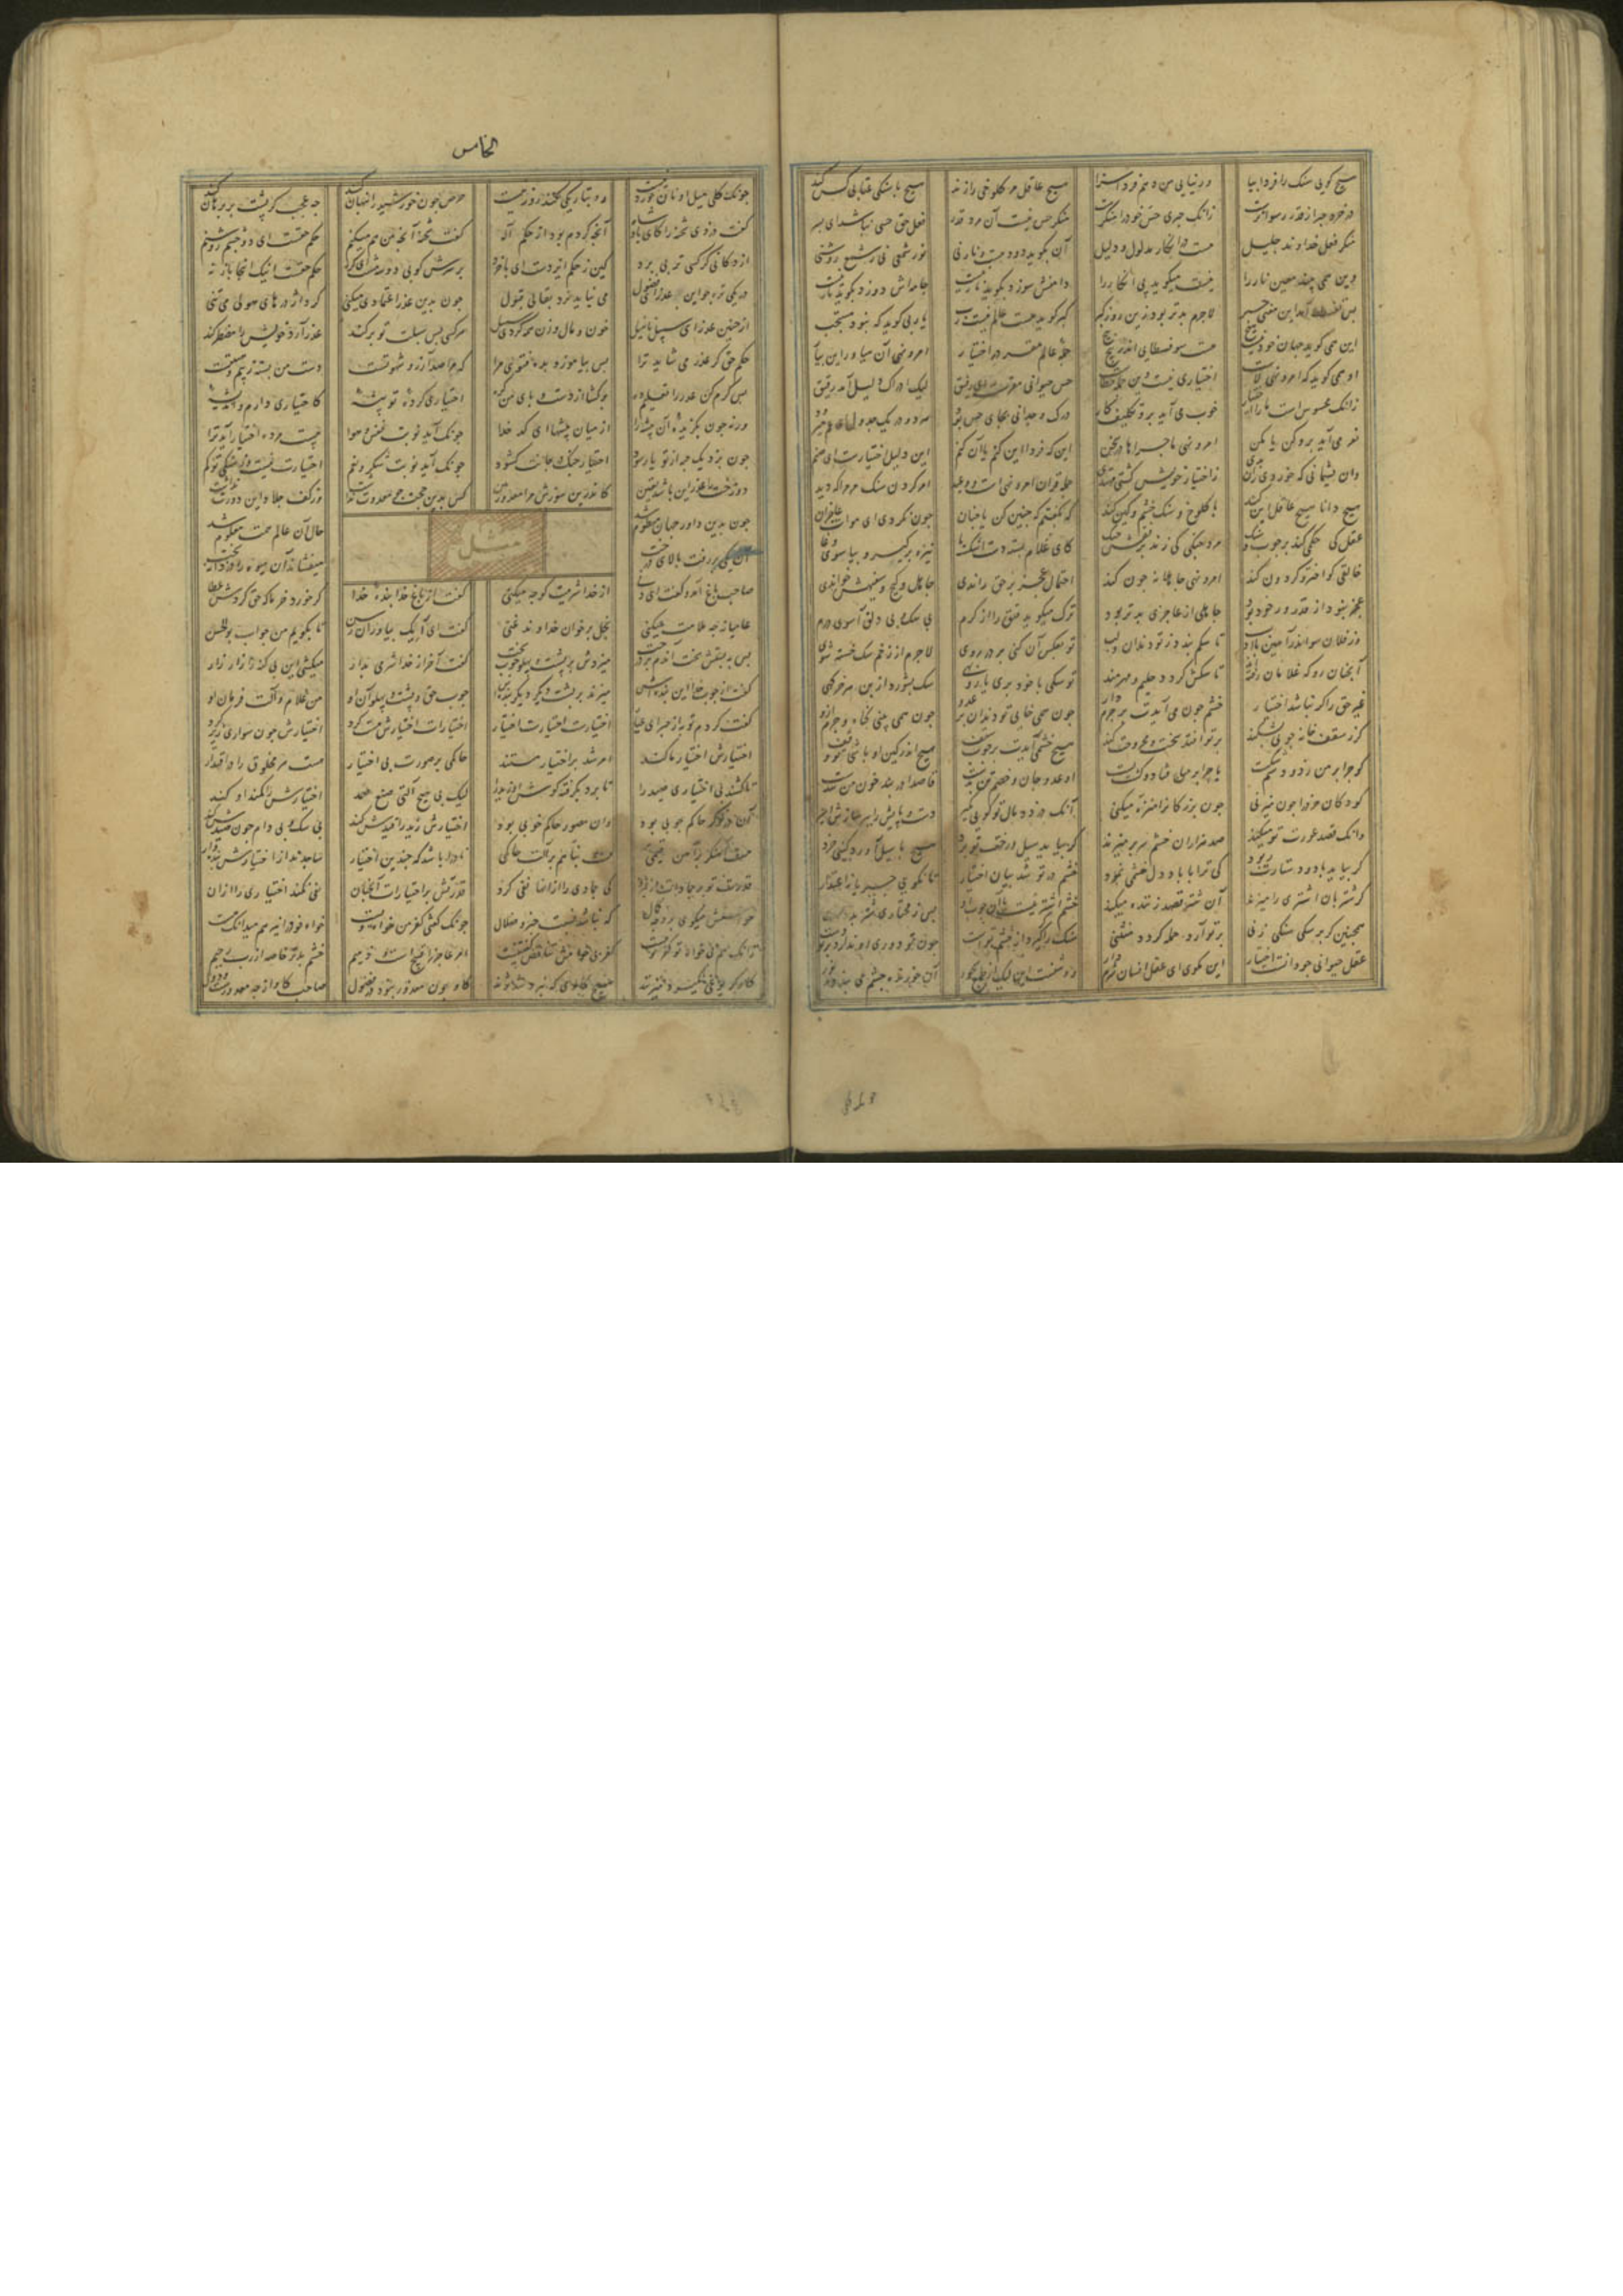 هیچ کویی سنک را فردا بیا ورنیایی من دهم فردا سزا هیچ عاقل مر کلوخی را زند هیچ با سنکی عتابی کس کند
در خرد جبر از قدر رسواترست زانک جبری حس خود را منکرست منکر حس نیست آن مرد قدر فعل حق حسی نباشد ای پسر
منکر فعل خداوند جلیل هست در انکار مدلول و دلیل آن بکوید دود هست و نار نی نور شمعی نی ز شمع روشنی
وین همی بیند معین نار را نیست میکوید پی انکار را دامنش سوزد بکوید نار نیست جامه اش دوزد بکوید تار نیست
پس تسفسط آمد این جبر لاجرم بدتر بود زین رو ز کبر کبر کوید هست عالم نیست رب یا ربی کوید که نبود مستحب
این همی کوید جهان خود نیست هیچ هست سوفسطایی اندر پیچ پیچ جمله عالم مقر در اختیار امر و نهی آن میاور این بیار
او همی کوید که امر و نهی لاست اختیاری نیست وین جمله خطاست حس حیوانی مقرست ای رفیق لیک ادراک دلیل آمد دقیق
زانک محسوس است ما را اختیار خوب می آید برو تکلیف کار درک وجدانی بجای حس بود هر دو در یک جدول ای عم میرود
نغز می آید برو کن یا مکن امر و نهی ماجراها در سخن این که فردا این کنم یا آن کنم این دلیل اختیارست ای صنم
وان پشیمانی که خوردی زان بدی ز اختیار خویش کشتی مهتدی جمله قران امر و نهی است و وعید امر کردن سنک مرمر را که دید
هیچ دانا هیچ عاقل این کند با کلوخ و سنک خشم و کین کند که بکفتم که چنین کن یا چنان چون نکردی ای موات عاجزان
عقل کی حکمی کند بر چوب و سنک مرد چنکی کی زند بر نقش چنک کای غلام بسته دست اشکسته پا نیزه برکیر و بیا سوی وغا
خالقی کو اختر و کردون کند امر و نهی جاهلانه چون کند احتمال عجز بر حق راندی جاهل و کیج و سفیهش خواندی
عجز نبود از قدر ور خود بود جاهلی از عاجزی بدتر بود ترک میکوید قنق را از کرم بی سک و بی دلق آ سوی درم
وز فلان سو اندرآ هین با ادب تا سکم بندد ز تو دندان و لب تو بعکس آن کنی بر در روی لاجرم از زخم سک خسته شوی
آنچنان رو که غلامان رفته اند تا سکش کردد حلیم و مهرمند تو سکی با خود بری یا روبهی سک بشورد از بن هر خرکهی
غیر حق را کر نباشد اختیار خشم چون می آیدت بر جرم دار چون همی خایی تو دندان بر عدو چون همی بینی کناه و جرم ازو
کر ز سقف خانه چوبی بشکند بر تو افتد سخت مجروحت کند هیچ خشمی آیدت بر چوب سقف هیچ اندر کین او باشی تو وقف
کو چرا بر من زد و دستم شکست یا چرا بر من فتاد و کرد پست او عدو جان و خصم تن بدست قاصدا در بند خون من شدست
کودکان خرد را چون میزنی چون بزرکانرا منزه میکنی آنک دزدد مال تو کویی بکیر دست و پایش را ببر سازش اسیر
وانک قصد عورت تو میکند صد هزاران خشم کر بیاید سیل و رخت تو برد هیچ با سیل آورد کینی خرد
کر بیاید باد و دستارت ربود کی ترا با باد دل خشمی نمود خشم در تو شد بیان اختیار تا نکویی جبریانه اعتذار
کر شتربان اشتری را میزند آن شتر قصد زننده میکند خشم اشتر نیست با آن چوب او پس ز مختاری شتر
همچنین کر بر سکی سنکی زنی بر تو آرد حمله کردد منثنی سنک را کر کیرد از خشم توست چون تو دوری او ندارد بر تو دست
عقل حیوانی چو دانست اختیار این مکوی ای عقل انسان شرم دار روشنست این لیک از آن خورنده چشم می بندد ز نور
الخامس
چونک کلی میل او نان خوردنیست رو بتاریکی کند روز نیست حرص چون خورشید را پنهان کند چه عجب کر پشت بر برهان کند
کفت دزدی شحنه را کای پادشاه آنچه کردم بود از حکم اله کفت شحنه آنچه من هم میکنم حکم حقست ای دو چشم روشنم
از دکانی کر کسی تربی برد کین ز حکم ایزدست ای با خرد بر سرش کوبی دو سه مشت ای کره حکم حقست اینک اینجا باز نه
در یکی تره چو این عذر ای فضول می نیاید نزد بقالی قبول چون بدین عذر اعتمادی میکنی کرد اژدرهای موئی می تنی
از چنین عذر ای سلیم نانبیل خون و مال و زن همه کردی سبیل هر کسی پس سبلت تو برکند عذر آرد خویش را مضطر کند
حکم حق کر عذر می شاید ترا پس بیاموز و بده فتوی مرا که مرا صد آرزو و شهوتست دست من بسته ز بیم و هیبتست
پس کرم کن عذر را تعلیم ده برکشا از دست و پای من کره اختیاری کرده تو پیشه کاختیاری دارم و اندیشه
ورنه چون بکزیده آن پیشه را از میان پیشها ای کدخدا چونک آید نوبت نفس و هوا بیست مرده اختیار آید ترا
چون برد یک حبه از تو یار سود اختیار جنک در جانت کشود چونک آید نوبت شکر و نعم اختیارت نیست وز سنکی تو کم
دوزخت را عذر این باشد یقین کاندرین سوزش مرا معذور بین کس بدین حجت چو معذورت نداشت وز کف جلاد این دورت نداشت
چون بدین داور جهان منظوم شد حال آن عالم همت معلوم شد
مثل
آن یکی بر رفت بالای درخت میفشاند آن میوه را دزدانه سخت
صاحب باغ آمد و کفت ای دنی از خدا شرمیت کو چه میکنی کفت از باغ خدا بنده خدا کر خورد خرما که حق کردش عطا
عامیانه چه ملامت میکنی بخل بر خوان خداوند غنی کفت ای ایبک بیاور آن رسن تا بکویم من جواب بوالحسن
پس ببستش سخت آندم بر درخت میزدش بر پشت و پهلو چوب سخت کفت آخر از خدا شرمی بدار میکشی این بی کنه را زار زار
کفت از چوب خدا این بنده اش میزند بر پشت دیکر بنده چوب حق و پشت و پهلو آن او من غلام و آلت فرمان او
کفت توبه کردم از جبر ای عیار اختیارست اختیارست اختیار اختیارات اختیارش هست کرد اختیارش چون سواری زیر کرد
اختیارش اختیار ما کند امر شد بر اختیار مستند حاکمی بر صورت بی اختیار هست هر مخلوق را در اقتدار
تا کشد بی اختیاری صید را تا برد بکرفته کوش او زید را لیک بی هیچ آلتی صنع صمد اختیارش را کمند او کند
آن دروکر حاکم چوبی بود وان مصور حاکم خوبی بود اختیارش زید را قیدش کند بی سک و بی دام چون صیدش کند
هست آهنکر بر آهن قیمی هست بنا هم بر آلت حاکمی نادر باشد که چندین اختیار ساجد اندر اختیارش بنده وار
قدرت تو بر جمادات از نبرد کی جمادی را از آنها نفی کرد قدرتش بر اختیارات آنچنان نفی نکند اختیاری را از آن
خواستش میکوی بر وجه کمال که نباشد نسبت جبر و ضلال چونک کفتی کفر من خواست ویست خواه خود را نیز هم میدانک هست
زانک بی خواه تو خود کفر تو نیست کفر بی خواهش تناقض کفتنیست امر عاجز را قبیحست و ذمیم خشم بدتر خاصه از رب رحیم
کاو کر یوغی نکیرد میزنند هیچ کاوی کو نپرد شد نژند کاو چون معذور نبود در فضول صاحب کاو از چه معذورست و دول